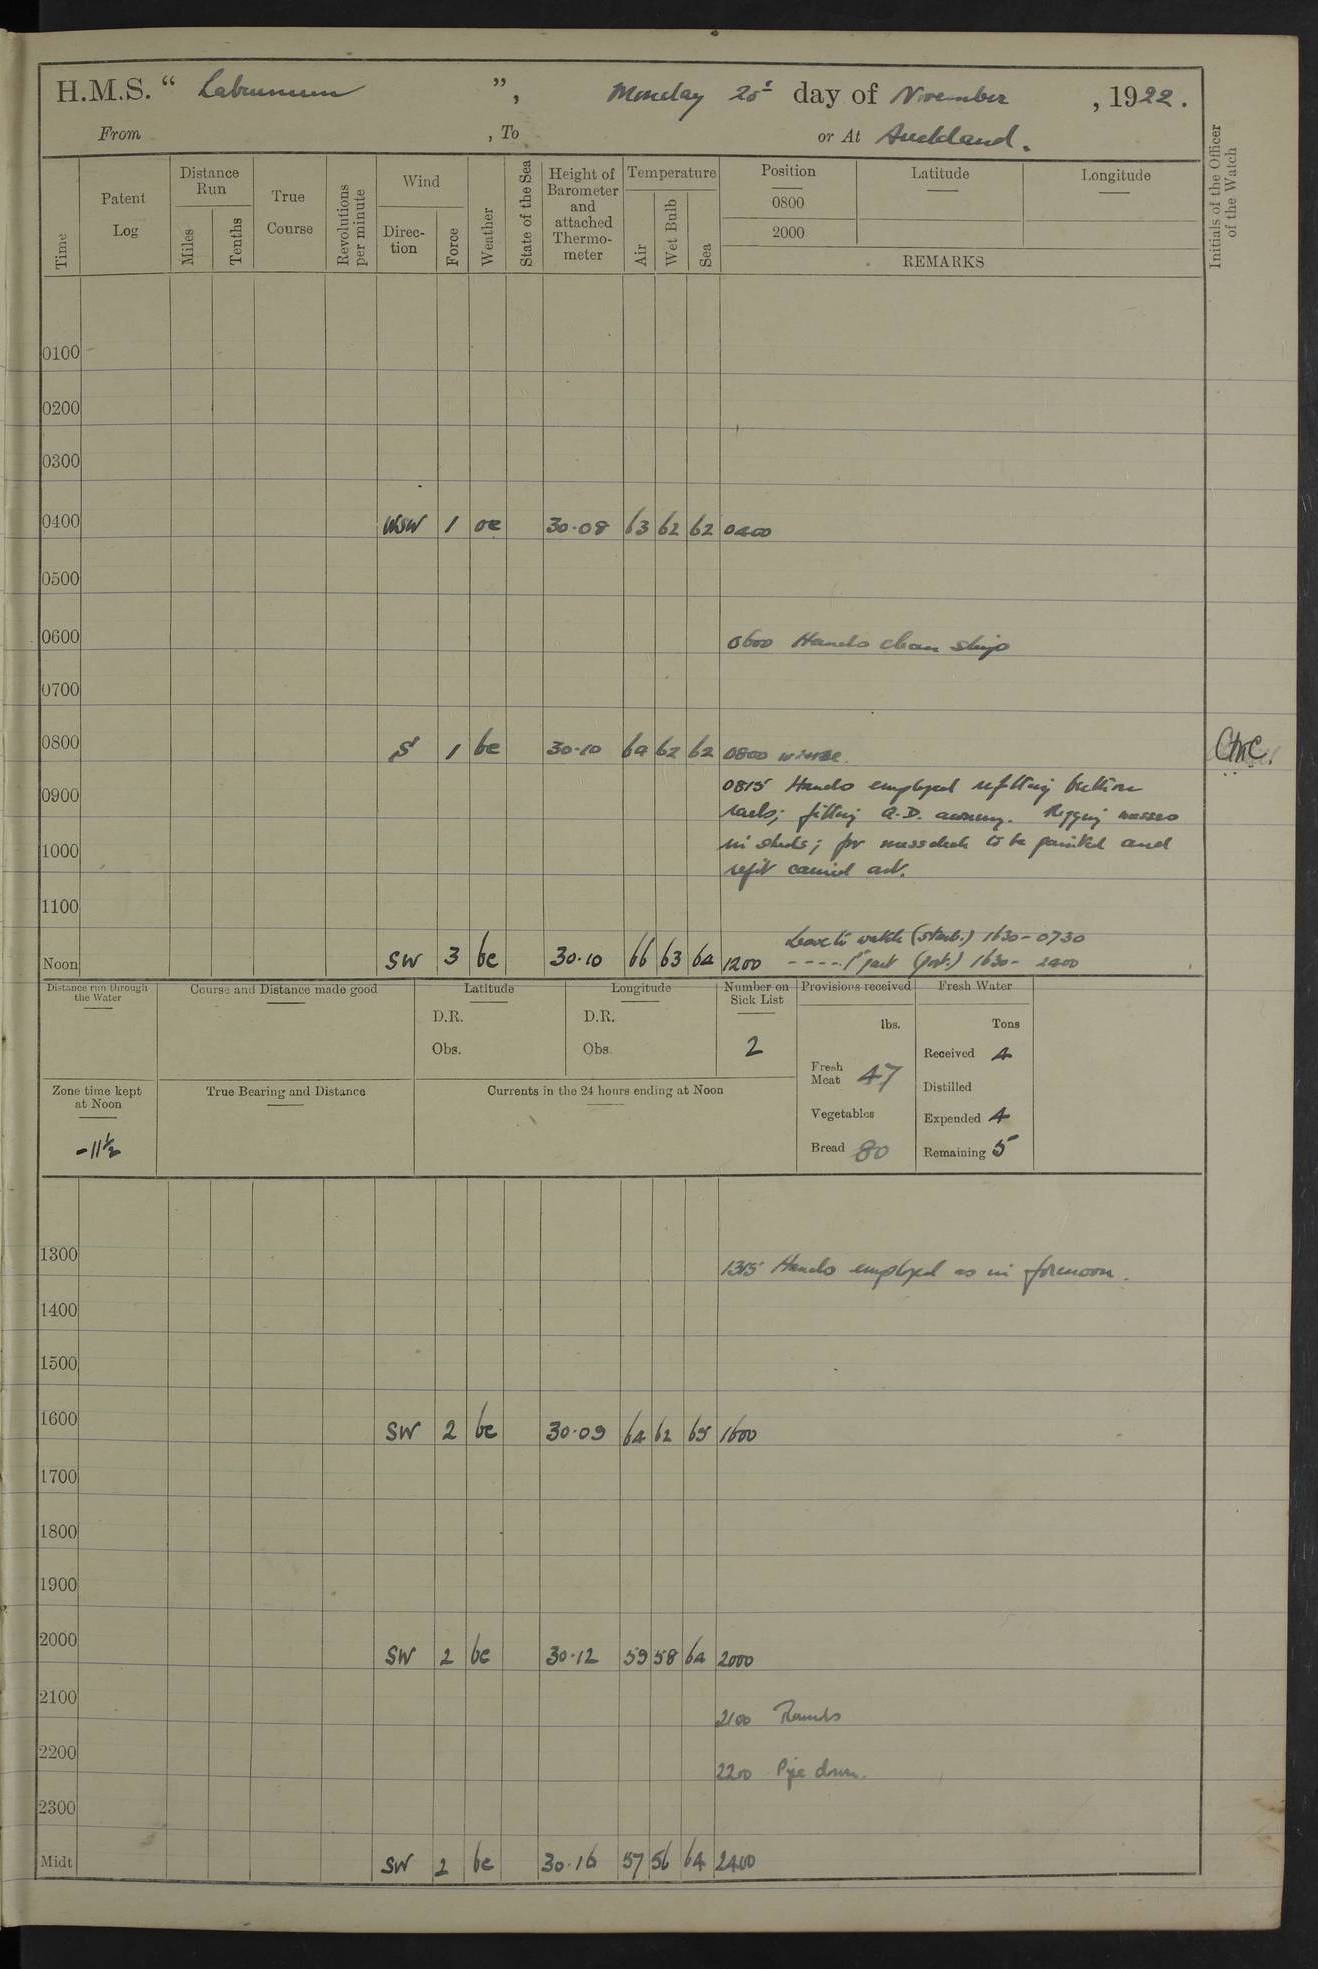 H.M.S. “ Laburnum ”, Monday 20th day of November, 1922.
From , To or At Auckland.
Time
Patent Log
Distance Run
Miles
Tenths
True Course
Revolutions per minute
Wind
Direction
Force
Weather
State of the Sea
Height of Barometer and attached Thermometer
Temperature
Air
Wet Bulb
Sea
Position
0800
2000
Latitude
Longitude
REMARKS
Initials of the Officer of the Watch
0100
0200
0300
0400 WSW 1 oc 30·08 63 62 62 0400
0500
0600 0600 Hands clean ship
0700
0800 S 1 bc 30·10 64 62 62 0800
0900 0815 Hands employed refitting
racks; fitting Q.D. awning. Rigging messes
1000 in sheds; for messdeck to be painted and
refit carried out.
1100
Leave to watch (starb.) 1630-0730
Noon SW 3 bc 30·10 66 63 64 1200 ---- 1st part (port.) 1630- 2400
Distance run through the Water
Course and Distance made good
Latitude
D.R.
Obs.
Longitude
D.R.
Obs.
Number on Sick List
2
Provisions received
lbs.
Fresh Meat 47
Vegetables
Bread 80
Fresh Water
Tons
Received 4
Distilled
Expended 4
Remaining 5
Zone time kept at Noon
-11½
True Bearing and Distance
Currents in the 24 hours ending at Noon
1300 1315 Hands employed as in forenoon.
1400
1500
1600 SW 2 bc 30·09 64 62 65 1600
1700
1800
1900
2000 SW 2 bc 30·12 59 58 64 2000
2100 2100 Rounds
2200 2200 Pipe down.
2300
Midt SW 2 bc 30·16 57 56 64 2400